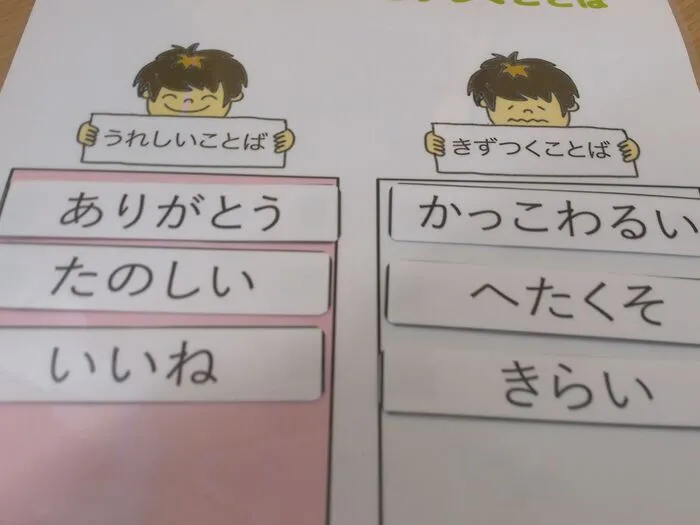 うれしいことば
ありがとう
たのしい
いいね
きずつくことば
かっこわるい
へたくそ
きらい